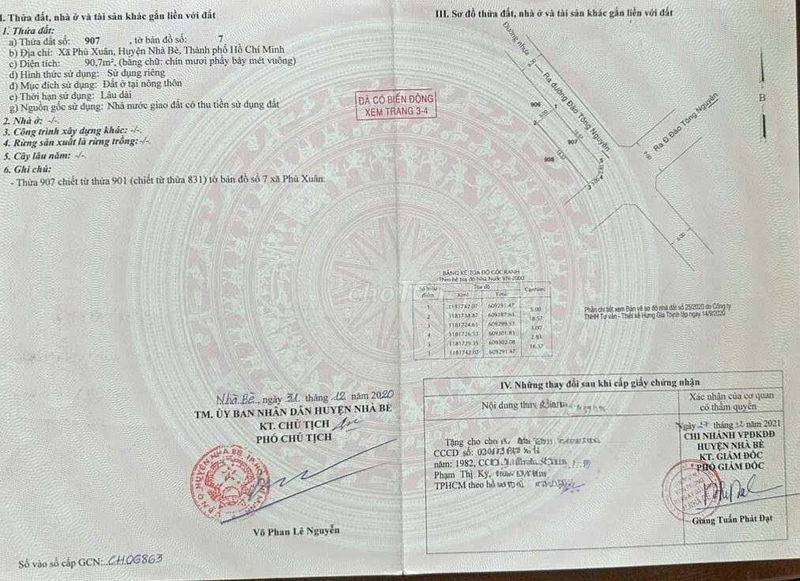 I. Thửa đất, nhà ở và tài sản khác gắn liền với đất
1. Thửa đất:
a) Thửa đất số: 907 , tờ bản đồ số: 7
b) Địa chỉ: Xã Phú Xuân, Huyện Nhà Bè, Thành phố Hồ Chí Minh
c) Diện tích: 90,7m², (bằng chữ: chín mươi phẩy bảy mét vuông)
d) Hình thức sử dụng: Sử dụng riêng
đ) Mục đích sử dụng: Đất ở tại nông thôn
e) Thời hạn sử dụng: Lâu dài
g) Nguồn gốc sử dụng: Nhà nước giao đất có thu tiền sử dụng đất
2. Nhà ở: -/-
3. Công trình xây dựng khác: -/-.
4. Rừng sản xuất là rừng trồng:-/-.
5. Cây lâu năm: -/-
6. Ghi chú:
- Thửa 907 chiết từ thửa 901 (chiết từ thửa 831) tờ bản đồ số 7 xã Phú Xuân.
Nhà Bè, ngày 31 tháng 12 năm 2020
TM. ỦY BAN NHÂN DÂN HUYỆN NHÀ BÈ
KT. CHỦ TỊCH
PHÓ CHỦ TỊCH
Võ Phan Lê Nguyễn
Số vào sổ cấp GCN: CH06863
ĐÃ CÓ BIẾN ĐỘNG
XEM TRANG 3-4
III. Sơ đồ thửa đất, nhà ở và tài sản khác gắn liền với đất
Đường nhựa
Ra đường Đào Tông Nguyên
Ra Đ.Đào Tông Nguyên
B
906
907
908
BẢNG KÊ TỌA ĐỘ GÓC RANH
Theo hệ tọa độ Nhà Nước VN-2000
Số hiệu điểm
Tọa độ
Cạnh(m)
X(m)
Y(m)
Phần chi tiết xem Bản vẽ sơ đồ nhà đất số 25/2020 do Công ty
TNHH Tư vấn - Thiết kế Hưng Gia Thịnh lập ngày 14/9/2020
IV. Những thay đổi sau khi cấp giấy chứng nhận
Nội dung thay
Xác nhận của cơ quan
có thẩm quyền
Tặng cho
CCCD số:
năm: 1982,
Phạm Thị Kỷ,
TPHCM theo hồ
Ngày 27 tháng 12 năm 2021
CHI NHÁNH VPĐKĐĐ
HUYỆN NHÀ BÈ
KT. GIÁM ĐỐC
PHÓ GIÁM ĐỐC
Giang Tuấn Phát Đạt